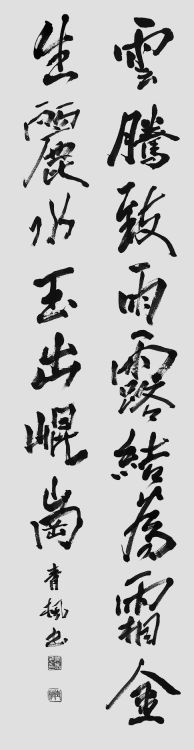 雲騰致雨露結為霜金
生麗水玉出崐崗
青楓书